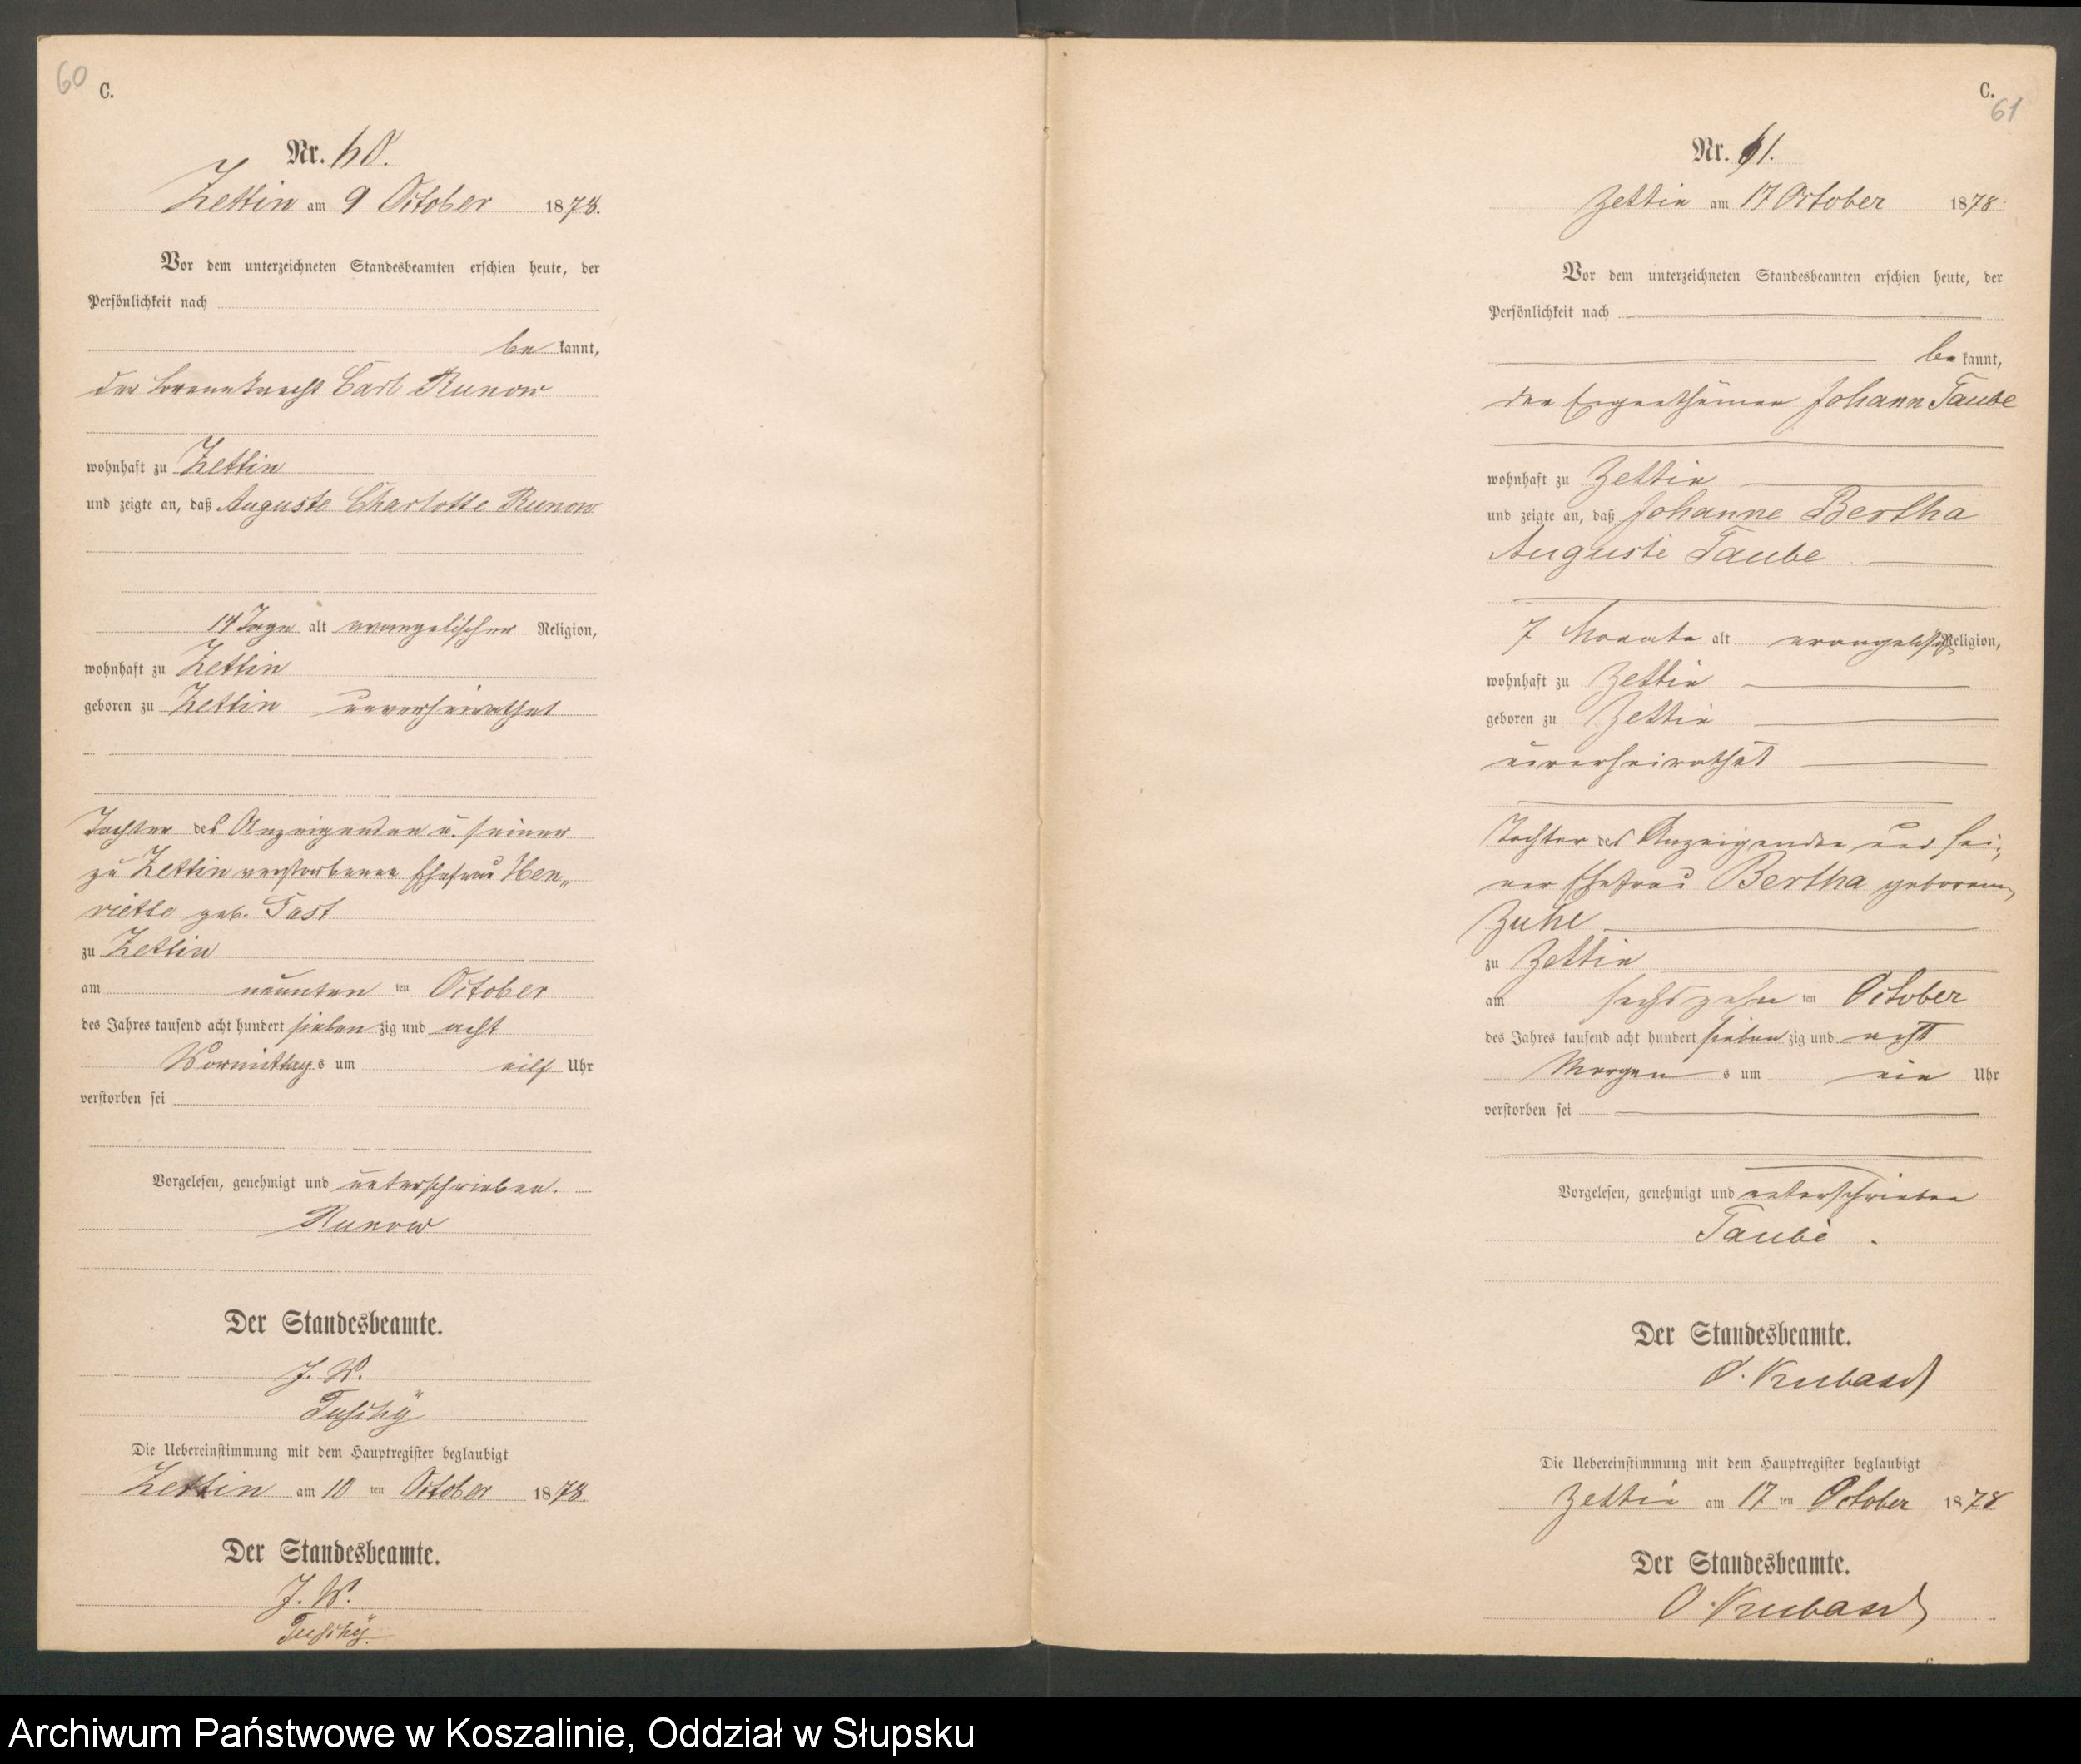 60
C.
Nr. 60.
Zettin am 9 October 1878.
Vor dem unterzeichneten Standesbeamten erschien heute, der
Persönlichkeit nach
be kannt,
der Carl Runow
wohnhaft zu Zettin
und zeigte an, daß Auguste Charlotte Runow
14 Tage alt evangelischer Religion,
wohnhaft zu Zettin
geboren zu Zettin unverheirathet
Tochter des Anzeigenden u. seiner
zu Zettin verstorbenen Ehefrau Hen„
riette geb. Tast
zu Zettin
am neunten ten October
des Jahres tausend acht hundert sieben zig und acht
Vormittag s um eilf Uhr
verstorben sei
Vorgelesen, genehmigt und unterschrieben.
Runow
Der Standesbeamte.
J. V.
Die Uebereinstimmung mit dem Hauptregister beglaubigt
Zettin am 10 ten October 1878.
Der Standesbeamte.
J. V.
C.
61
Nr. 61.
Zettin am 17 October 1878.
Vor dem unterzeichneten Standesbeamten erschien heute, der
Persönlichkeit nach
be kannt,
der Eigenthümer Johann Taube
wohnhaft zu Zettin
und zeigte an, daß Johanne Bertha
Auguste Taube
7 Monate alt evangelisch Religion,
wohnhaft zu Zettin
geboren zu Zettin
unverheirathet
Tochter des Anzeigenden und sei„
ner Ehefrau Bertha geborenen
Zuhl
zu Zettin
am sechszehn ten October
des Jahres tausend acht hundert sieben zig und acht
Morgen s um ein Uhr
verstorben sei
Vorgelesen, genehmigt und unterschrieben
Taube
Der Standesbeamte.
O. Krubasd
Die Uebereinstimmung mit dem Hauptregister beglaubigt
Zettin am 17 ten October 1878
Der Standesbeamte.
O. Krubasd
Archiwum Państwowe w Koszalinie, Oddział w Słupsku